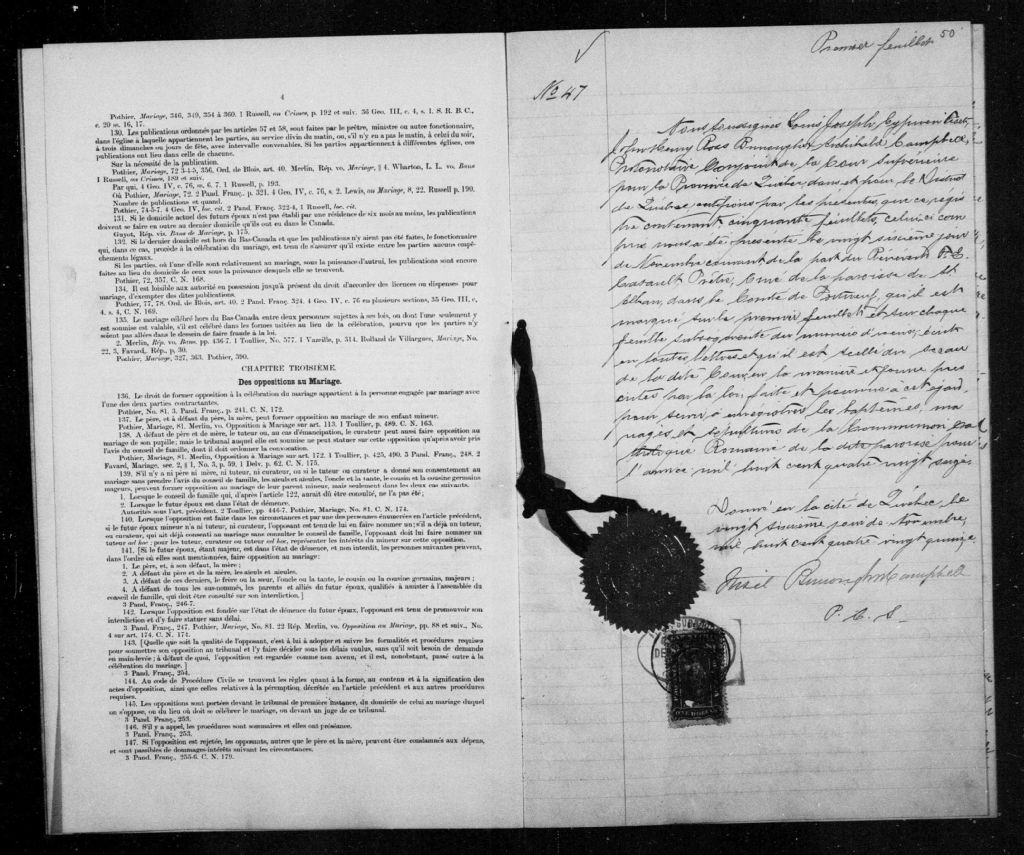 4
Pothier, Mariage, 346, 349, 354 à 360. 1 Russell, on Crimes, p. 192 et suiv. 36 Geo. III, c. 4, s. 1. S. R. B. C.,
c. 20 ss. 16, 17.
130. Les publications ordonnés par les articles 57 et 58, sont faites par le prêtre, ministre ou autre fonctionnaire,
dans l'église à laquelle appartiennent les parties, au service divin du matin, ou, s'il n'y en a pas le matin, à celui du soir,
à trois dimanches ou jours de fête, avec intervalle convenables. Si les parties appartiennent à différentes églises, ces
publications ont lieu dans celle de chacune.
Sur la nécessité de la publication.
Pothier, Mariage, 72 3-4-5, 356, Ord. de Blois, art. 40. Merlin, Rép. vo Mariage, § 4. Wharton, L. L. vo. Bans
1 Russell, on Crimes, 189 et suiv.
Par qui, 4 Geo. IV, c. 76, ss. 6, 7. 1 Russell, p. 193.
Où Pothier, Mariage, 72. 2 Pand. Franç., p. 321. 4 Geo. IV, c. 76, s. 2. Lewis, on Mariage, 8, 22. Russell p. 190.
Nombre de publications et quand.
Pothier, 74-5-7. 4 Geo. IV, loc. cit. 2 Pand. Franç., 322-4, 1 Russell, loc. cit.
131. Si le domicile actuel des futurs époux n'est pas établi par une résidence de six mois au moins, les publications
doivent se faire en outre au dernier domicile qu'ils ont eu dans le Canada.
Guyot, Rép. vis. Bans de Mariage, p. 175.
132. Si le dernier domicile est hors du Bas-Canada et que les publications n'y aient pas été faites, le fonctionnaire
qui, dans ce cas, procède à la célébration du mariage, est tenu de s'assurer qu'il existe entre les parties aucuns empê-
chements légaux.
Si les parties, où l'une d'elle sont relativement au mariage, sous la puissance d'autrui, les publications sont encore
faites au lieu du domicile de ceux sous la puissance desquels elle se trouvent.
Pothier, 72, 357. C. N. 168.
134. Il est loisible aux autorité en possession jusqu'à présent du droit d'accorder des licences ou dispenses pour
mariage, d'exempter des dites publications.
Pothier, 77, 78. Ord. de Blois, art. 40. 2 Pand. Franç. 324. 4 Geo. IV, c. 76 en plusieurs sections, 35 Geo. III, c,
4, s. 4, C. N. 169.
135. Le mariage célébré hors du Bas-Canada entre deux personnes sujettes à ses lois, ou dont l'une seulement y
est soumise est valable, s'il est célébré dans les formes usitées au lieu de la célébration, pourvu que les parties n'y
soient pas allées dans le dessein de faire fraude à la loi.
2. Merlin, Rép. vo. Bans, pp. 436-7. 1 Toullier, No. 577. 1 Vazille, p. 314. Rolland de Villargues, Mariage, No.
22, 3, Favard, Rép., p. 30.
Pothier, Mariage, 327, 363. Pothier, 390.
CHAPITRE TROISIÈME.
Des oppositions au Mariage.
136. Le droit de former opposition à la célébration du mariage appartient à la personne engagée par mariage avec
l'une des deux parties contractantes.
Pothier, No. 81. 3. Pand. Franç., p. 241. C. N. 172.
137. Le père, et à défaut du père, la mère, peut former opposition au mariage de son enfant mineur.
Pothier, Mariage, 81. Merlin, vo. Opposition à Mariage sur art. 113. 1 Toullier, p. 489. C. N. 163.
138. A défaut de père et de mère, le tuteur ou, au cas d'émancipation, le curateur peut aussi faire opposition au
mariage de son pupille; mais le tribunal auquel elle est soumise ne peut statuer sur cette opposition qu'après avoir pris
l'avis du conseil de famille, dont il doit ordonner la convocation.
Pothier, Mariage, 81. Merlin, Opposition à Mariage sur art. 172. 1 Toullier, p. 425, 490. 3 Pand. Franç., 248. 2
Favard, Mariage, sec. 2, § 1, No. 3, p. 59. 1 Delv. p. 62. C. N. 175.
139. S'il n'y a ni père ni mère, ni tuteur, ni curateur, ou si le tuteur ou curateur a donné son consentement au
mariage sans prendre l'avis du conseil de famille, les aïeuls et aïeules, l'oncle et la tante, le cousin et la cousine germains
majeurs, peuvent former opposition au mariage de leur parent mineur, mais seulement dans les deux cas suivants.
1. Lorsque le conseil de famille qui, d'après l'article 122, aurait dû être consulté, ne l'a pas été;
2. Lorsque le futur époux est dans l'état de démence.
Autorités sous l'art. précédent. 2 Toullier, pp 446-7. Pothier, Mariage, No. 81. C. N. 174.
140. Lorsque l'opposition est faite dans les circonstances et par une des personnes énumérées en l'article précédent,
si le futur époux mineur n'a ni tuteur, ni curateur, l'opposant est tenu de lui en faire nommer un; s'il a déjà un tuteur,
ou curateur, qui ait déjà consenti au mariage sans consulter le conseil de famille, l'opposant doit lui faire nommer un
tuteur ad hoc; pour les tuteur, curateur ou tuteur ad hoc, représenter les intérêts du mineur sur cette opposition.
141. [Si le futur époux, étant majeur, est dans l'état de démence, et non interdit, les personnes suivantes peuvent,
dans l'ordre où elles sont mentionnées, faire opposition au mariage:
1. Le père, et, à son défaut, la mère;
2. A défaut du père et de la mère, les aïeuls et aïeules.
3. A défaut de ces derniers, le frère ou la sœur, l'oncle ou la tante, le cousin ou la cousine germains, majeurs;
4. A défaut de tous les sus-nommés, les parents et alliés du futur époux, qualifiés à assister à l'assemblée du
conseil de famille, qui doit être consulté sur son interdiction.]
3 Pand. Franç., 246-7.
142. Lorsque l'opposition est fondée sur l'état de démence du futur époux, l'opposant est tenu de promouvoir son
interdiction et d'y faire statuer sans délai.
3 Pand. Franç., 247. Pothier, Mariage, No. 81. 22 Rép. Merlin, vo. Opposition au Mariage, pp. 88 et suiv., No.
4 sur art. 174. C. N. 174.
143. [Quelque que soit la qualité de l'opposant, c'est à lui à adopter et suivre les formalités et procédures requises
pour soumettre son opposition au tribunal et l'y faire décider sous les délais voulus, sans qu'il soit besoin de demande
en main-levée; à défaut de quoi, l'opposition est regardée comme non avenu, et il est, nonobstant, passé outre à la
célébration du mariage.]
3 Pand. Franç., 254.
144. Au code de Procédure Civile se trouvent les règles quant à la forme, au contenu et à la signification des
actes d'opposition, ainsi que celles relatives à la péremption, décrétée en l'article précédent et aux autres procédures
requises.
145. Les oppositions sont portées devant le tribunal de première instance, du domicile de celui au mariage duquel
on s'oppose, ou du lieu où doit se célébrer le mariage, ou devant un juge de ce tribunal.
3 Pand. Franç., 253.
146. S'il y a appel, les procédures sont sommaires et elles ont préséance.
3 Pand. Franç., 253.
147. Si l'opposition est rejetée, les opposants, autres que le père et la mère, peuvent être condamnés aux dépens,
et sont passibles de dommages-intérêts suivant les circonstances.
3 Pand. Franç., 255-6. C. N. 179.
Premier feuillet 50
No 47
Nous soussignés Louis Joseph Cyprien Fiset,
John Henry Ross Burroughs & Archibald Campbell,
Protonotaire Conjoint de la Cour Supérieure
pour la Province de Québec dans et pour le District
de Québec certifions par les présentes, que ce régis
tre contenant cinquante feuillets, celui-ci com
pris nous a été présenté ce vingt sixième jour
de Novembre courant de la part du Révérend
Casault Prêtre, Curé de la paroisse de St
dans le Comté de Portneuf, qu'il est
marqué sur le premier feuillet et sur chaque
feuillet subséquent du numéro d'icelui, écrit
en toutes lettres et qu'il est scellé du sceau
de la dite Cour, en la manière et forme pres
crites par la loi, faite et pourvue à cet égard,
pour servir à enregistrer les baptêmes, ma
riages et sépultures de la Communion Ca
tholique Romaine de la dite paroisse pour
l'année mil huit cent quatre vingt seize.
Donné en la cité de Québec le
vingt sixième jour de Novembre,
mil huit cent quatre vingt quinze
Fiset Burroughs & Campbell
P. C. S.